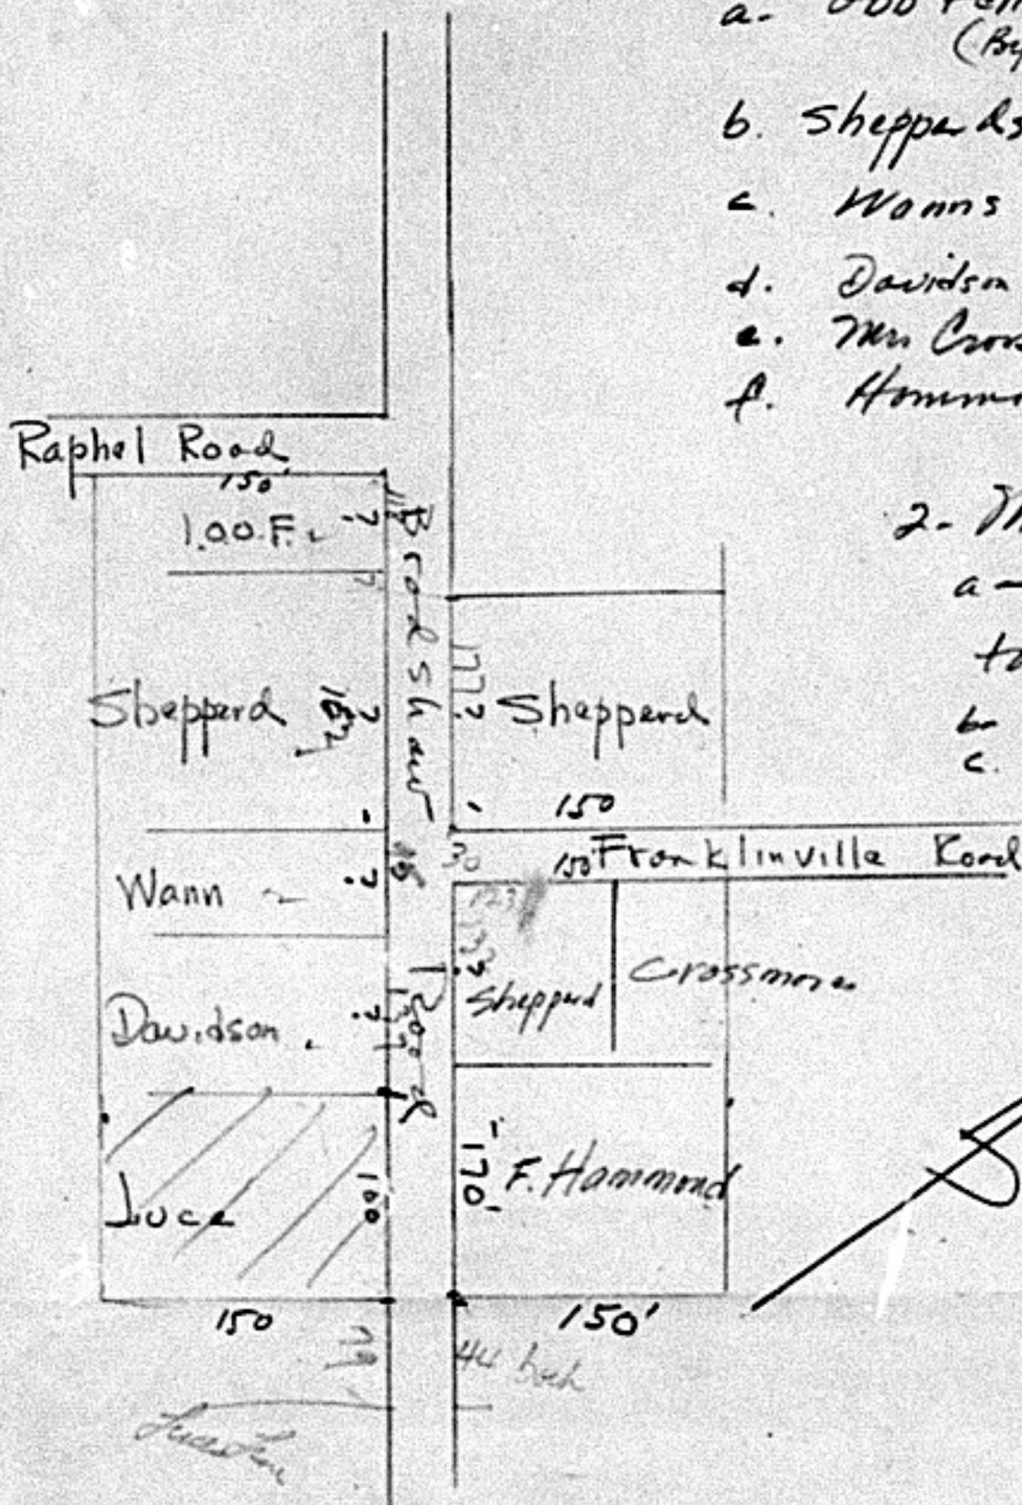 a-
(By
b. Shepperds
c. Wanns
d. Davidson
e. Mrs Cros
f. Hammo
2-
a -
to
b
c.
Raphel Road
150'
I.O.O.F.
Bradshaw Road
Shepperd
177?
Shepperd
150
30
150 Franklinville Road
Wann
?
Shepperd
Crossmore
Davidson
?
Luce
100
170'
F. Hammond
150
150'
79
44 back
Luce Line